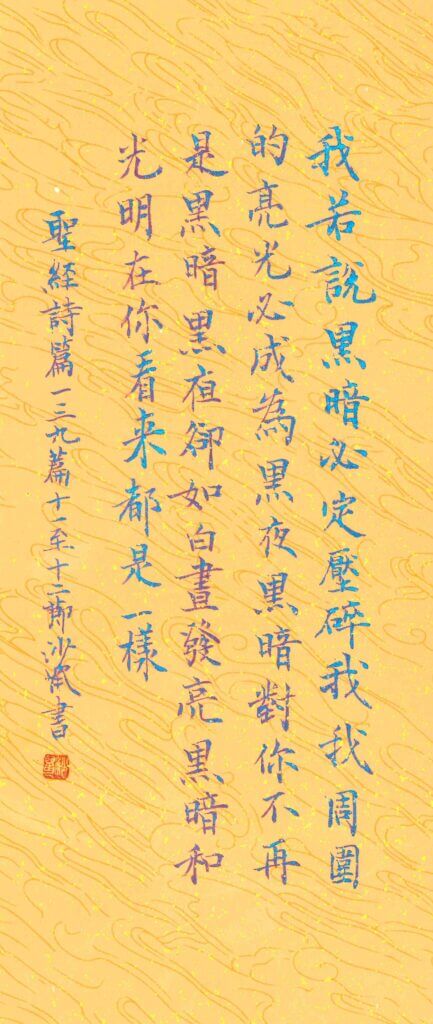 我若說黑暗必定壓碎我我周圍
的亮光必成為黑夜黑暗對你不再
是黑暗黑夜卻如白晝發亮黑暗和
光明在你看来都是一樣
聖経詩篇一三九篇十一至十二節沙書